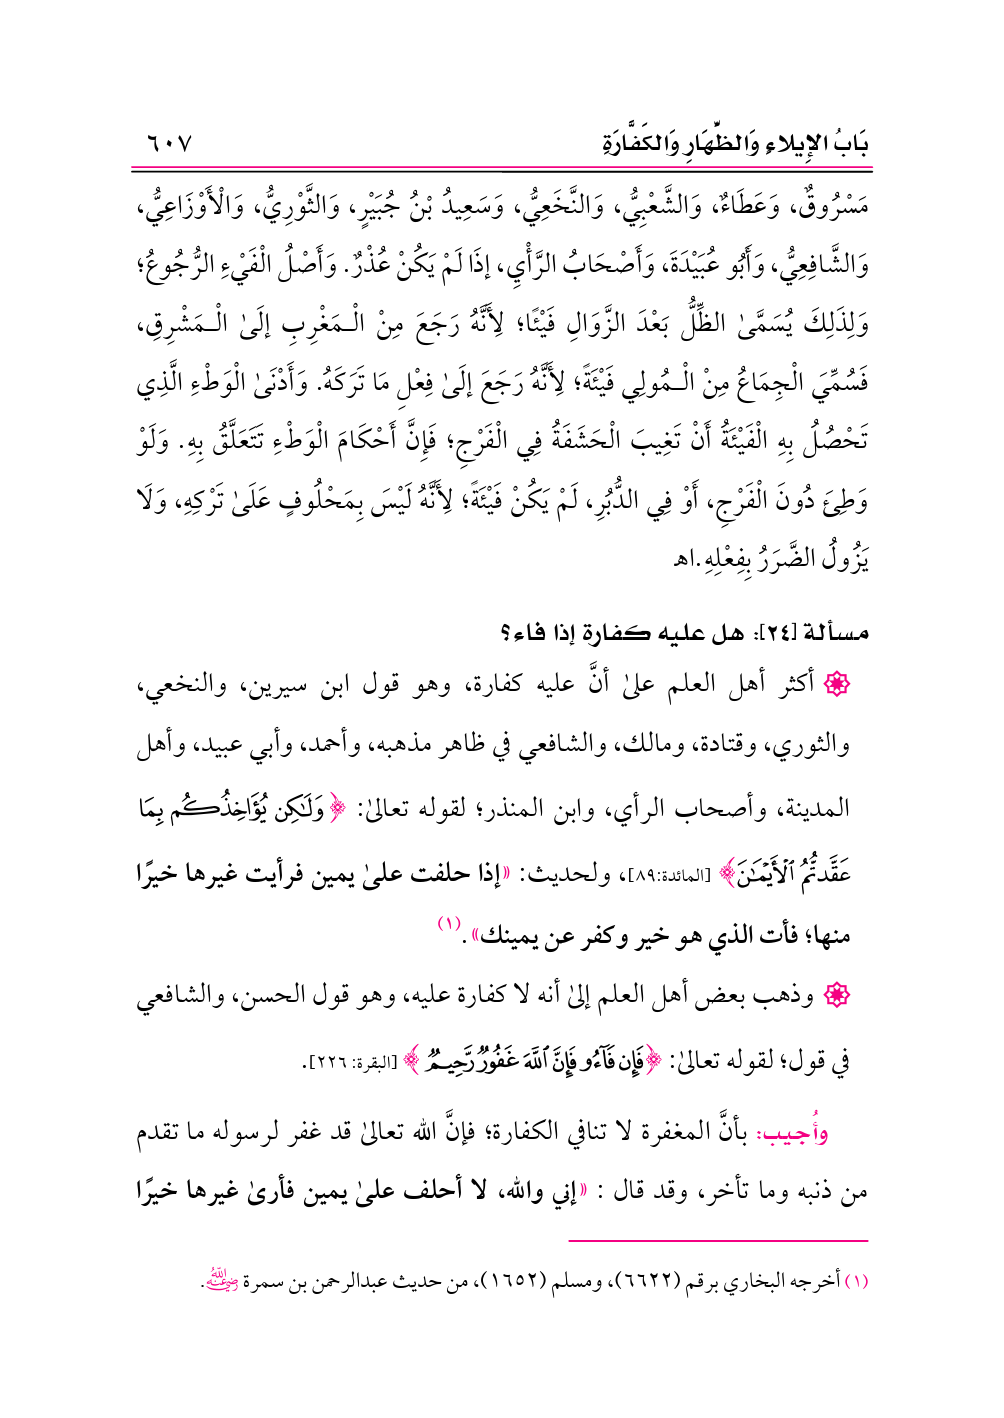 بَابُ الإِيلاءِ وَالظِّهَارِ وَالكَفَّارَةِ ٦٠٧
مَسْرُوقٌ، وَعَطَاءٌ، وَالشَّعْبِيُّ، وَالنَّخَعِيُّ، وَسَعِيدُ بْنُ جُبَيْرٍ، وَالثَّوْرِيُّ، وَالْأَوْزَاعِيُّ،
وَالشَّافِعِيُّ، وَأَبُو عُبَيْدَةَ، وَأَصْحَابُ الرَّأْيِ، إذَا لَمْ يَكُنْ عُذْرٌ. وَأَصْلُ الْفَيْءِ الرُّجُوعُ؛
وَلِذَلِكَ يُسَمَّىٰ الظِّلُّ بَعْدَ الزَّوَالِ فَيْئًا؛ لِأَنَّهُ رَجَعَ مِنْ الْـمَغْرِبِ إلَىٰ الْـمَشْرِقِ،
فَسُمِّيَ الْجِمَاعُ مِنْ الْـمُولِي فَيْئَةً؛ لِأَنَّهُ رَجَعَ إلَىٰ فِعْلِ مَا تَرَكَهُ. وَأَدْنَىٰ الْوَطْءِ الَّذِي
تَحْصُلُ بِهِ الْفَيْئَةُ أَنْ تَغِيبَ الْحَشَفَةُ فِي الْفَرْجِ؛ فَإِنَّ أَحْكَامَ الْوَطْءِ تَتَعَلَّقُ بِهِ. وَلَوْ
وَطِئَ دُونَ الْفَرْجِ، أَوْ فِي الدُّبُرِ، لَمْ يَكُنْ فَيْئَةً؛ لِأَنَّهُ لَيْسَ بِمَحْلُوفٍ عَلَىٰ تَرْكِهِ، وَلَا
يَزُولُ الضَّرَرُ بِفِعْلِهِ.اهـ
مسألة [٢٤]: هل عليه كفارة إذا فاء؟
أكثر أهل العلم علىٰ أنَّ عليه كفارة، وهو قول ابن سيرين، والنخعي،
والثوري، وقتادة، ومالك، والشافعي في ظاهر مذهبه، وأحمد، وأبي عبيد، وأهل
المدينة، وأصحاب الرأي، وابن المنذر؛ لقوله تعالىٰ: ﴿وَلَٰكِن يُؤَاخِذُكُم بِمَا
عَقَّدتُّمُ ٱلْأَيْمَٰنَ﴾ [المائدة:٨٩]، ولحديث: «إذا حلفت علىٰ يمين فرأيت غيرها خيرًا
منها؛ فأت الذي هو خير وكفر عن يمينك». (١)
وذهب بعض أهل العلم إلىٰ أنه لا كفارة عليه، وهو قول الحسن، والشافعي
في قول؛ لقوله تعالىٰ: ﴿فَإِن فَآءُو فَإِنَّ ٱللَّهَ غَفُورٌ رَّحِيمٌ﴾ [البقرة: ٢٢٦].
وأُجيب: بأنَّ المغفرة لا تنافي الكفارة؛ فإنَّ الله تعالىٰ قد غفر لرسوله ما تقدم
من ذنبه وما تأخر، وقد قال : «إني والله، لا أحلف علىٰ يمين فأرىٰ غيرها خيرًا
(١) أخرجه البخاري برقم (٦٦٢٢)، ومسلم (١٦٥٢)، من حديث عبدالرحمن بن سمرة رضي الله عنه.